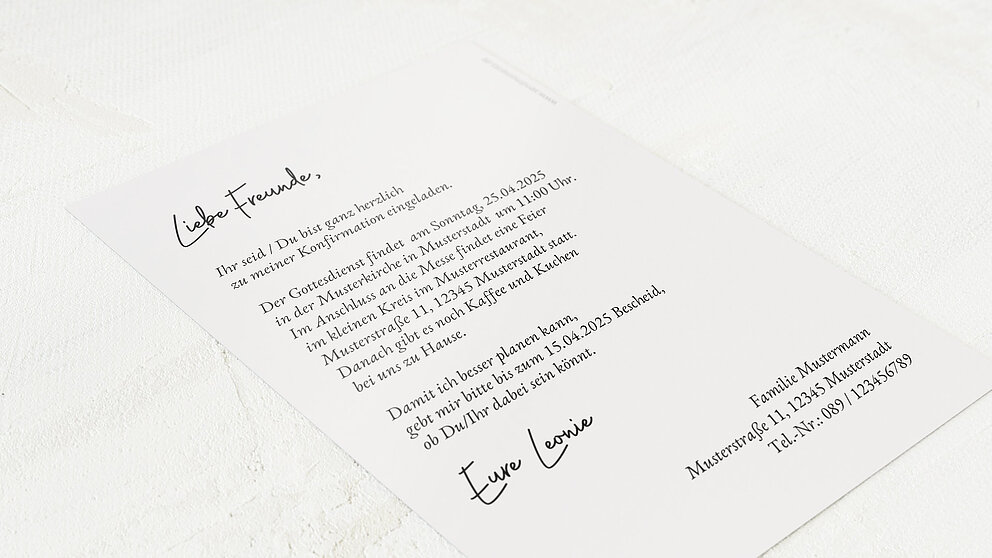 Liebe Freunde,
Ihr seid / Du bist ganz herzlich
zu meiner Konfirmation eingeladen.
Der Gottesdienst findet am Sonntag, 25.04.2025
in der Musterkirche in Musterstadt um 11:00 Uhr.
Im Anschluss an die Messe findet eine Feier
im kleinen Kreis im Musterrestaurant,
Musterstraße 11, 12345 Musterstadt statt.
Danach gibt es noch Kaffee und Kuchen
bei uns zu Hause.
Damit ich besser planen kann,
gebt mir bitte bis zum 15.04.2025 Bescheid,
ob Du/Ihr dabei sein könnt.
Eure Leonie
Familie Mustermann
Musterstraße 11, 12345 Musterstadt
Tel.-Nr.: 089 / 123456789